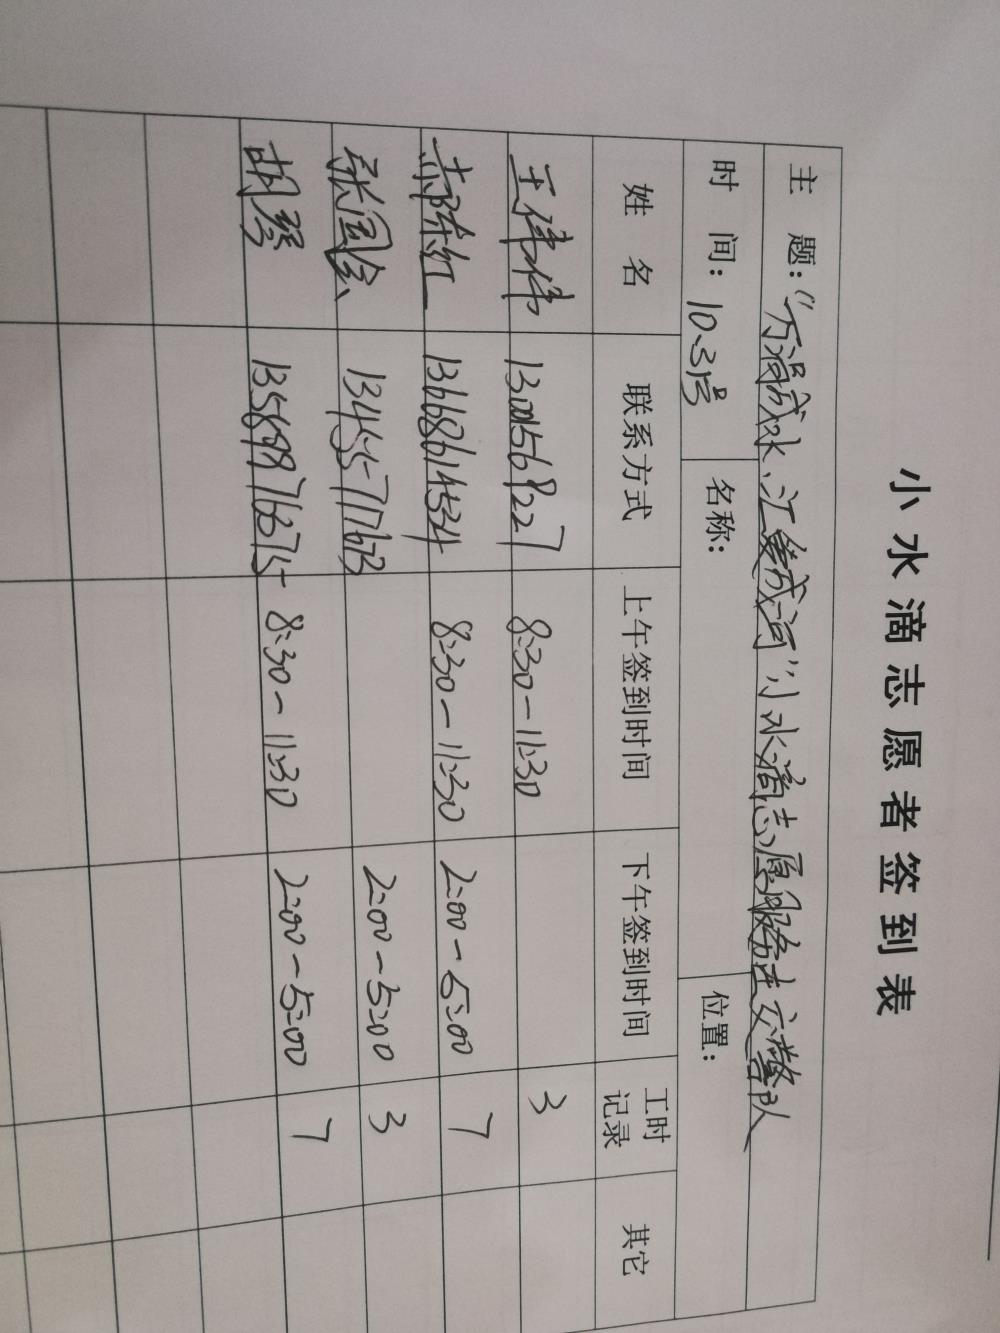 小水滴志愿者签到表
主 题：“万滴成水、江美成河”小水滴志愿服务走进交警队
时 间：10.3号 名称： 位置：
姓 名 联系方式 上午签到时间 下午签到时间 工时记录 其它
王伟伟 13001569227 8:30-11:30 3
陈红 13668614534 8:30-11:30 2:00-5:00 7
张国会 13455717673 2:00-5:00 3
胡琴 13589876375 8:30-11:30 2:00-5:00 7